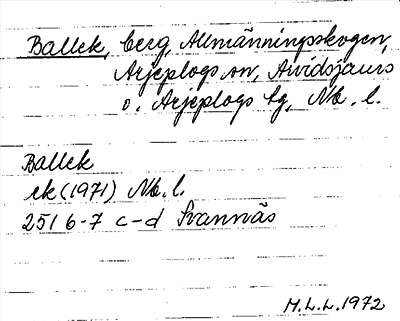 Ballek, berg, Allmänningsskogen,
Arjeplogs sn, Arvidsjaurs
o. Arjeplogs tg, Nb. l.
Ballek
ek (1971) Nb. l.
251 6-7 c-d Svannäs
M.L.L. 1972